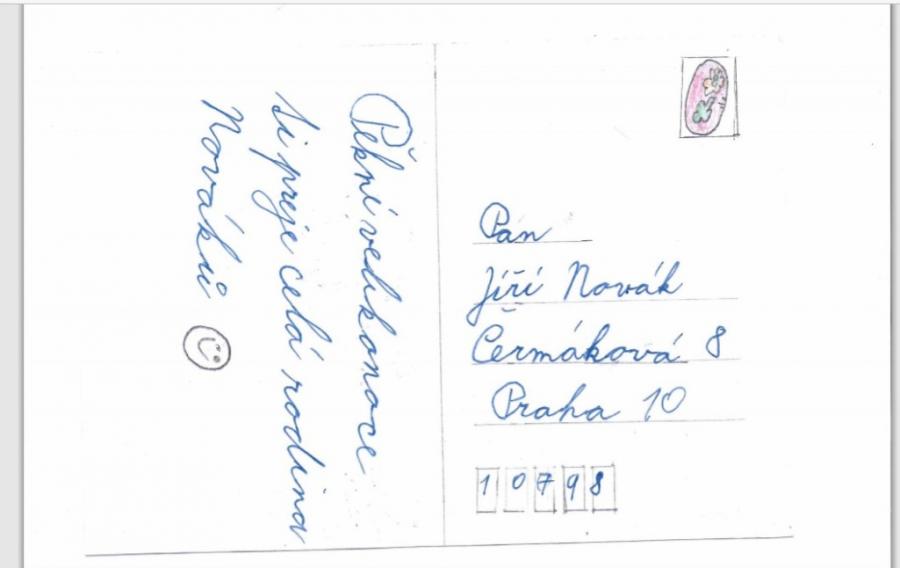 Pěkní velikonoce
ti preje celá rodina
Nováků
Pan
Jiří Novák
Čermáková 8
Praha 10
10798